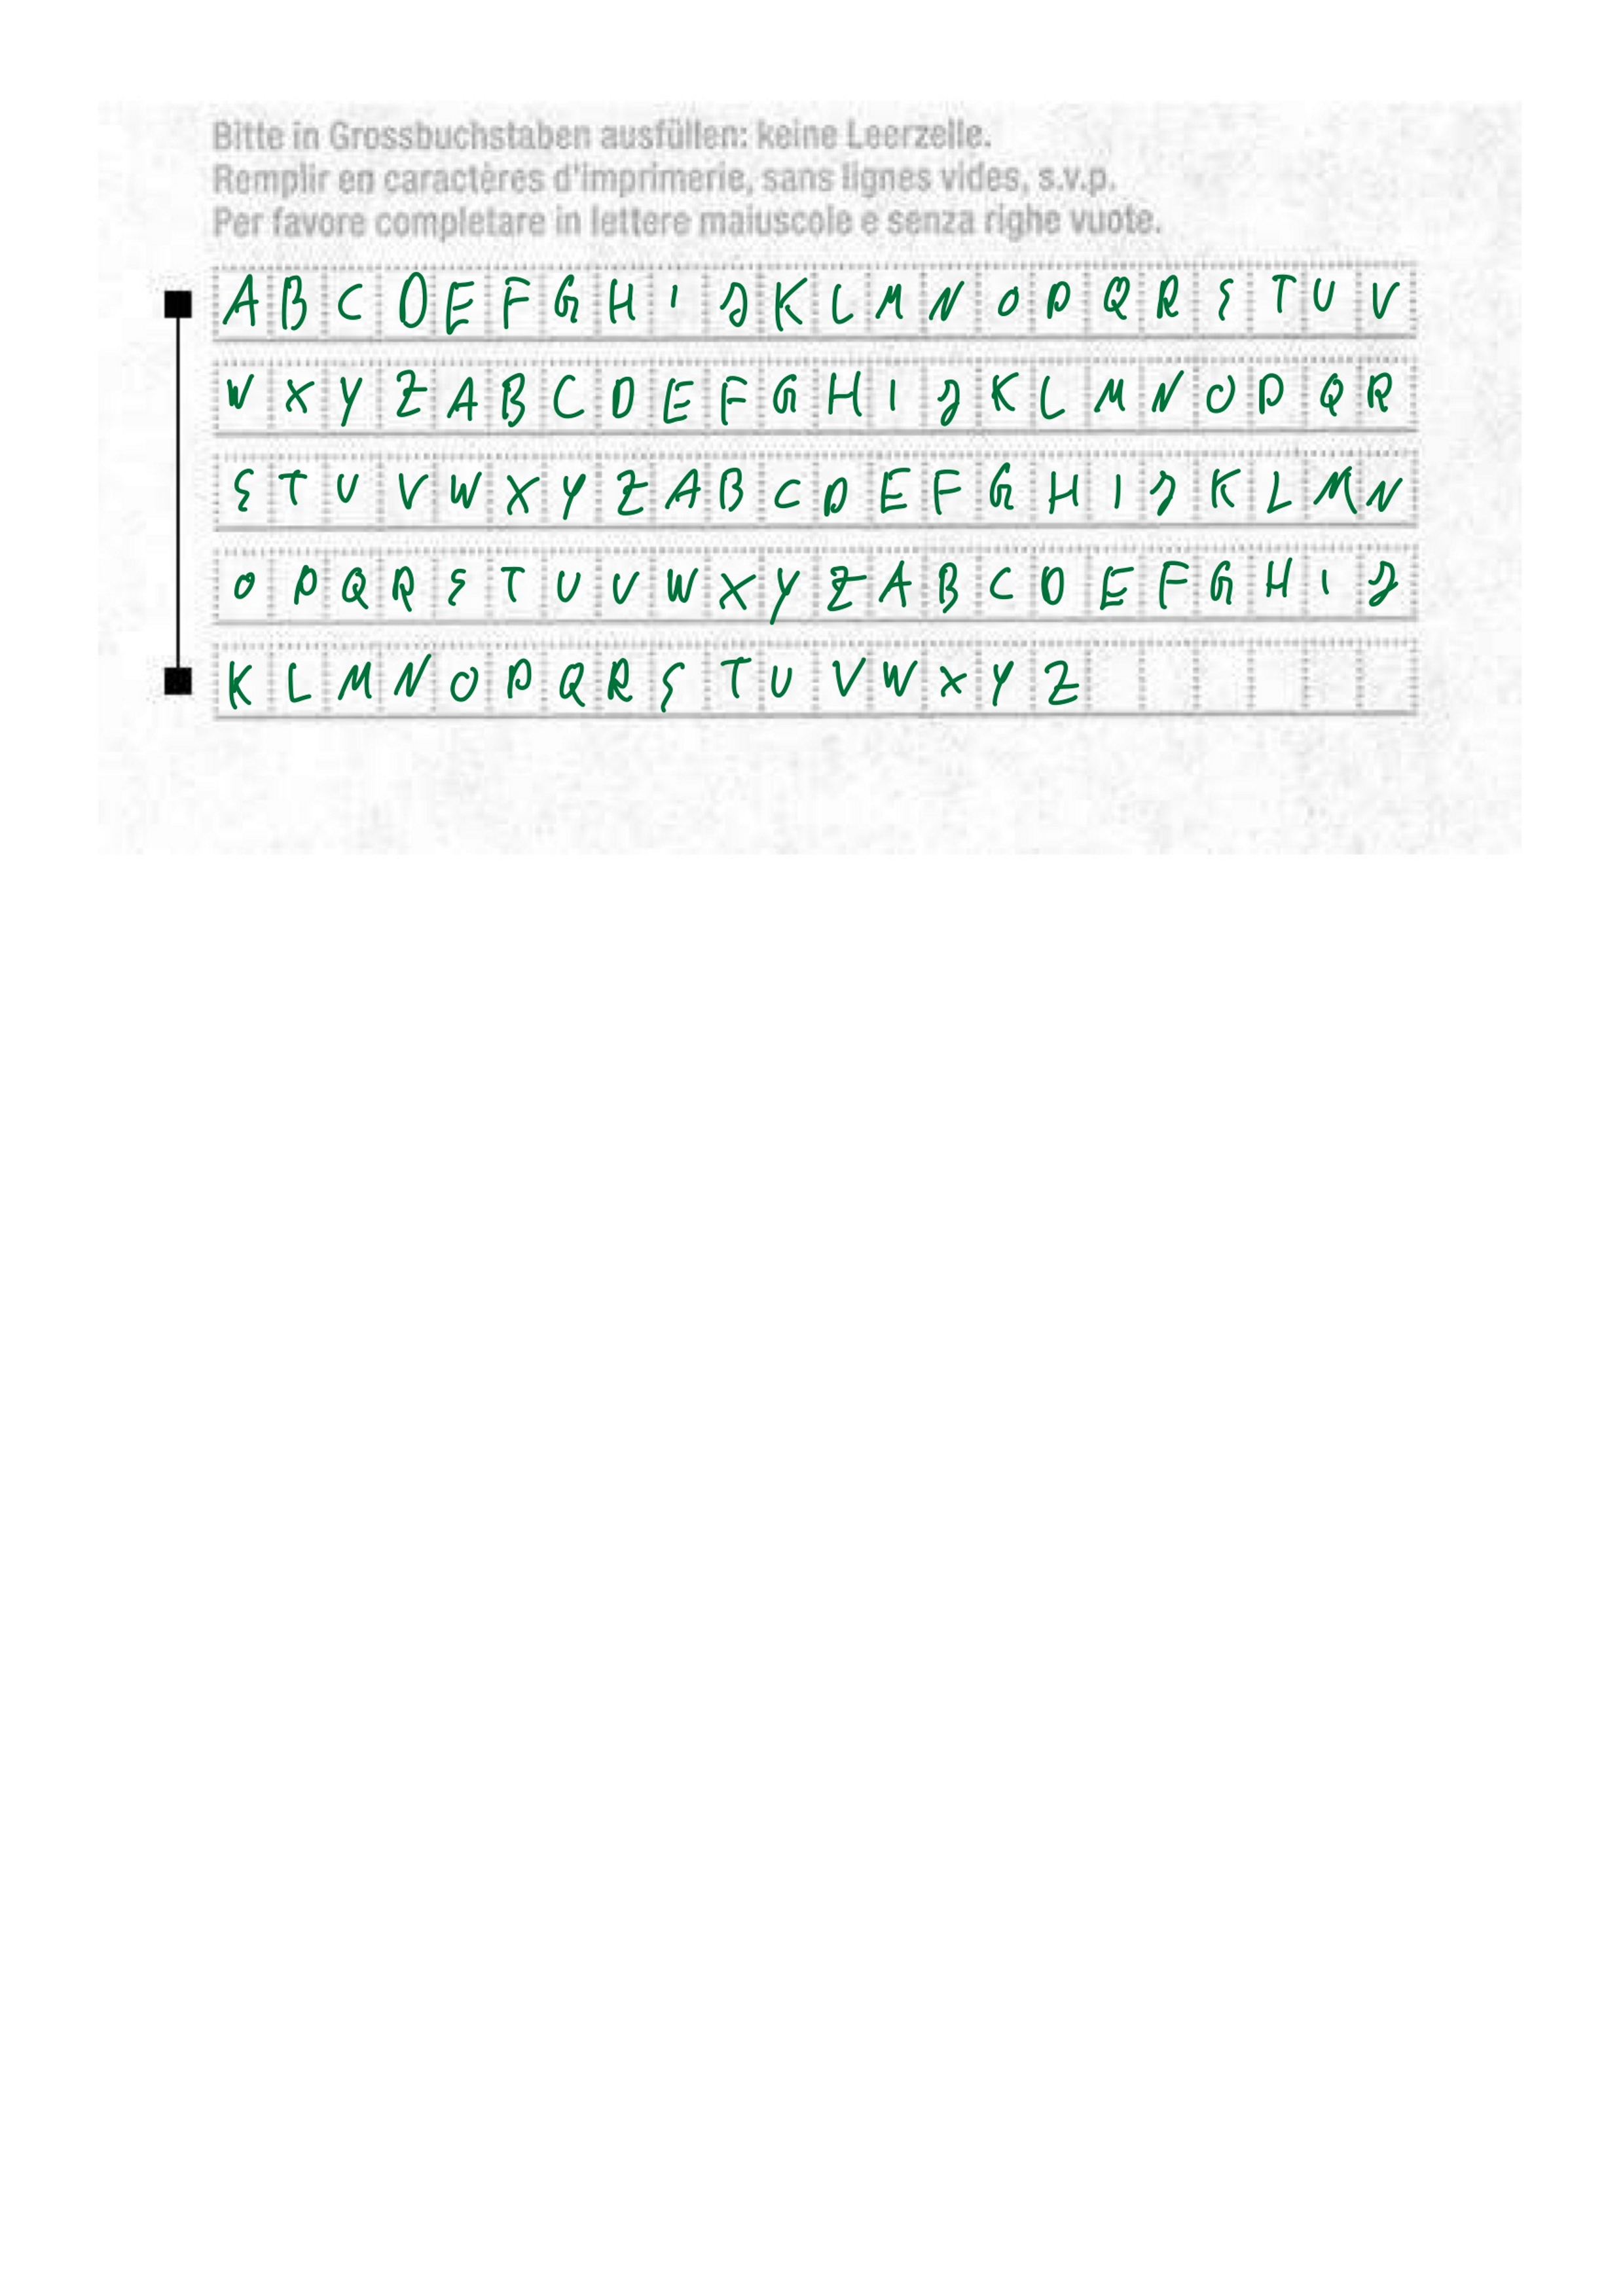 Bitte in Grossbuchstaben ausfüllen: keine Leerzelle.
Remplir en caractères d'imprimerie, sans lignes vides, s.v.p.
Per favore completare in lettere maiuscole e senza righe vuote.
A B C D E F G H I J K L M N O P Q R S T U V
W X Y Z A B C D E F G H I J K L M N O P Q R
S T U V W X Y Z A B C D E F G H I J K L M N
O P Q R S T U V W X Y Z A B C D E F G H I J
K L M N O P Q R S T U V W X Y Z